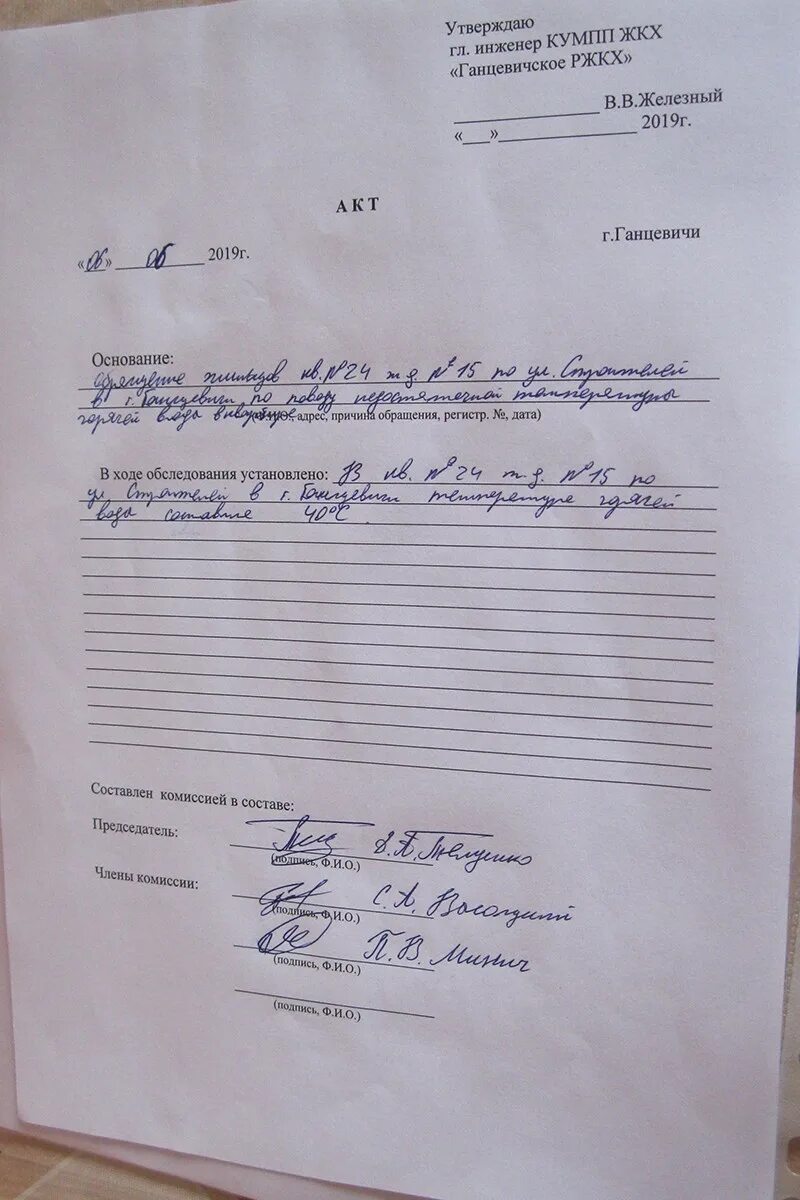 Утверждаю
гл. инженер КУМПП ЖКХ
«Ганцевичское РЖКХ»
____________ В.В.Железный
«___»____________ 2019г.
АКТ
г.Ганцевичи
«06» 06 2019г.
Основание:
обращение жильцов кв. №24 ж.д. №15 по ул. Строителей
в г. Ганцевичи, по поводу недостаточной температуры
горячей воды в квартире.
(Ф.И.О., адрес, причина обращения, регистр. №, дата)
В ходе обследования установлено: В кв. №24 ж.д. №15 по
ул. Строителей в г. Ганцевичи температура горячей
воды составила 40°C
Составлен комиссией в составе:
Председатель: Д.А.
(подпись, Ф.И.О.)
Члены комиссии: С.А.
(подпись, Ф.И.О.)
П.В. Минич
(подпись, Ф.И.О.)
(подпись, Ф.И.О.)